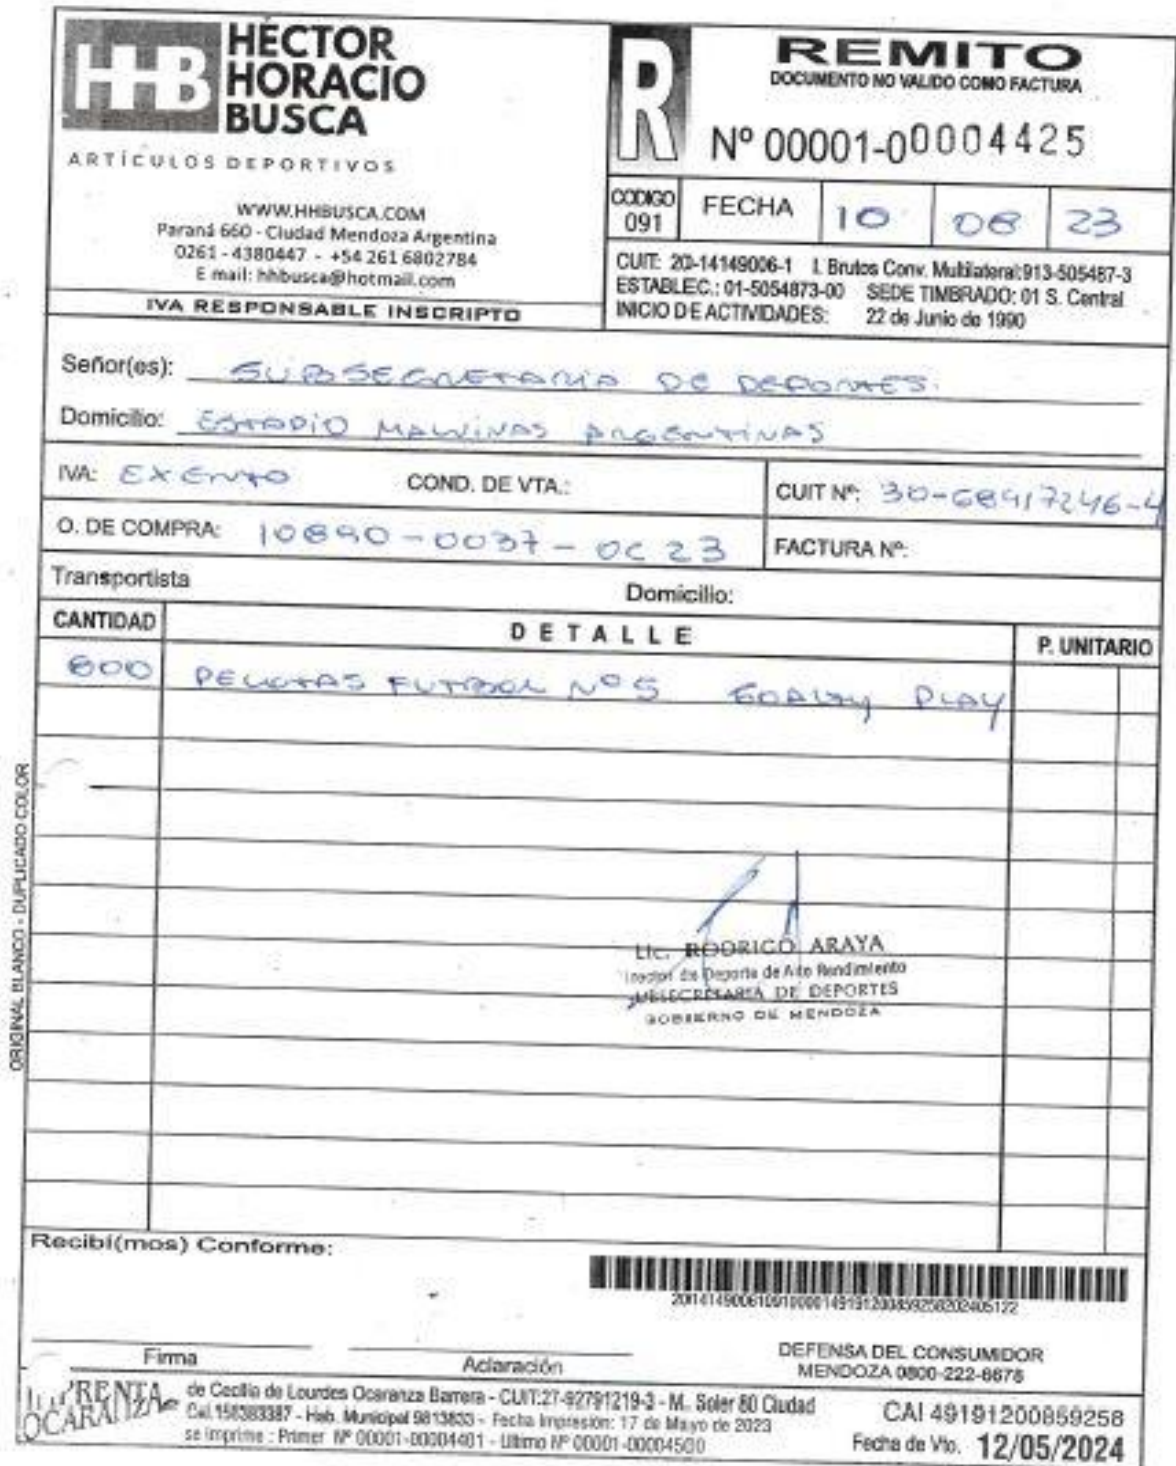 HHB HÉCTOR
HORACIO
BUSCA
ARTÍCULOS DEPORTIVOS
WWW.HHBUSCA.COM
Paraná 660 - Ciudad Mendoza Argentina
0261 - 4380447 - +54 261 6802784
E mail: hhbusca@hotmail.com
IVA RESPONSABLE INSCRIPTO
R
REMITO
DOCUMENTO NO VALIDO COMO FACTURA
Nº 00001-00004425
CODIGO 091 FECHA 10 08 23
CUIT: 20-14149006-1 I. Brutos Conv. Multilateral:913-505487-3
ESTABLEC.: 01-5054873-00 SEDE TIMBRADO: 01 S. Central
INICIO DE ACTIVIDADES: 22 de Junio de 1990
Señor(es): SUBSECRETARIA DE DEPORTES.
Domicilio: ESTADIO MALVINAS ARGENTINAS
IVA: EXENTO COND. DE VTA.: CUIT Nº: 30-68917246-4
O. DE COMPRA: 10890-0037-OC 23 FACTURA Nº:
Transportista Domicilio:
CANTIDAD DETALLE P. UNITARIO
800 PELOTAS FUTBOL Nº 5 GOALTY PLAY
Lic. RODRIGO ARAYA
Director de Deporte de Alto Rendimiento
SUBSECRETARIA DE DEPORTES
GOBIERNO DE MENDOZA
ORIGINAL BLANCO - DUPLICADO COLOR
Recibí(mos) Conforme:
Firma Aclaración
DEFENSA DEL CONSUMIDOR
MENDOZA 0800-222-6678
IMPRENTA OCARANZA
de Cecilia de Lourdes Ocaranza Barrera - CUIT:27-92791219-3 - M. Soler 80 Ciudad
Cel.156383387 - Hab. Municipal 9813833 - Fecha Impresión: 17 de Mayo de 2023
se imprime : Primer Nº 00001-00004401 - Ultimo Nº 00001-00004500
CAI 49191200859258
Fecha de Vto. 12/05/2024